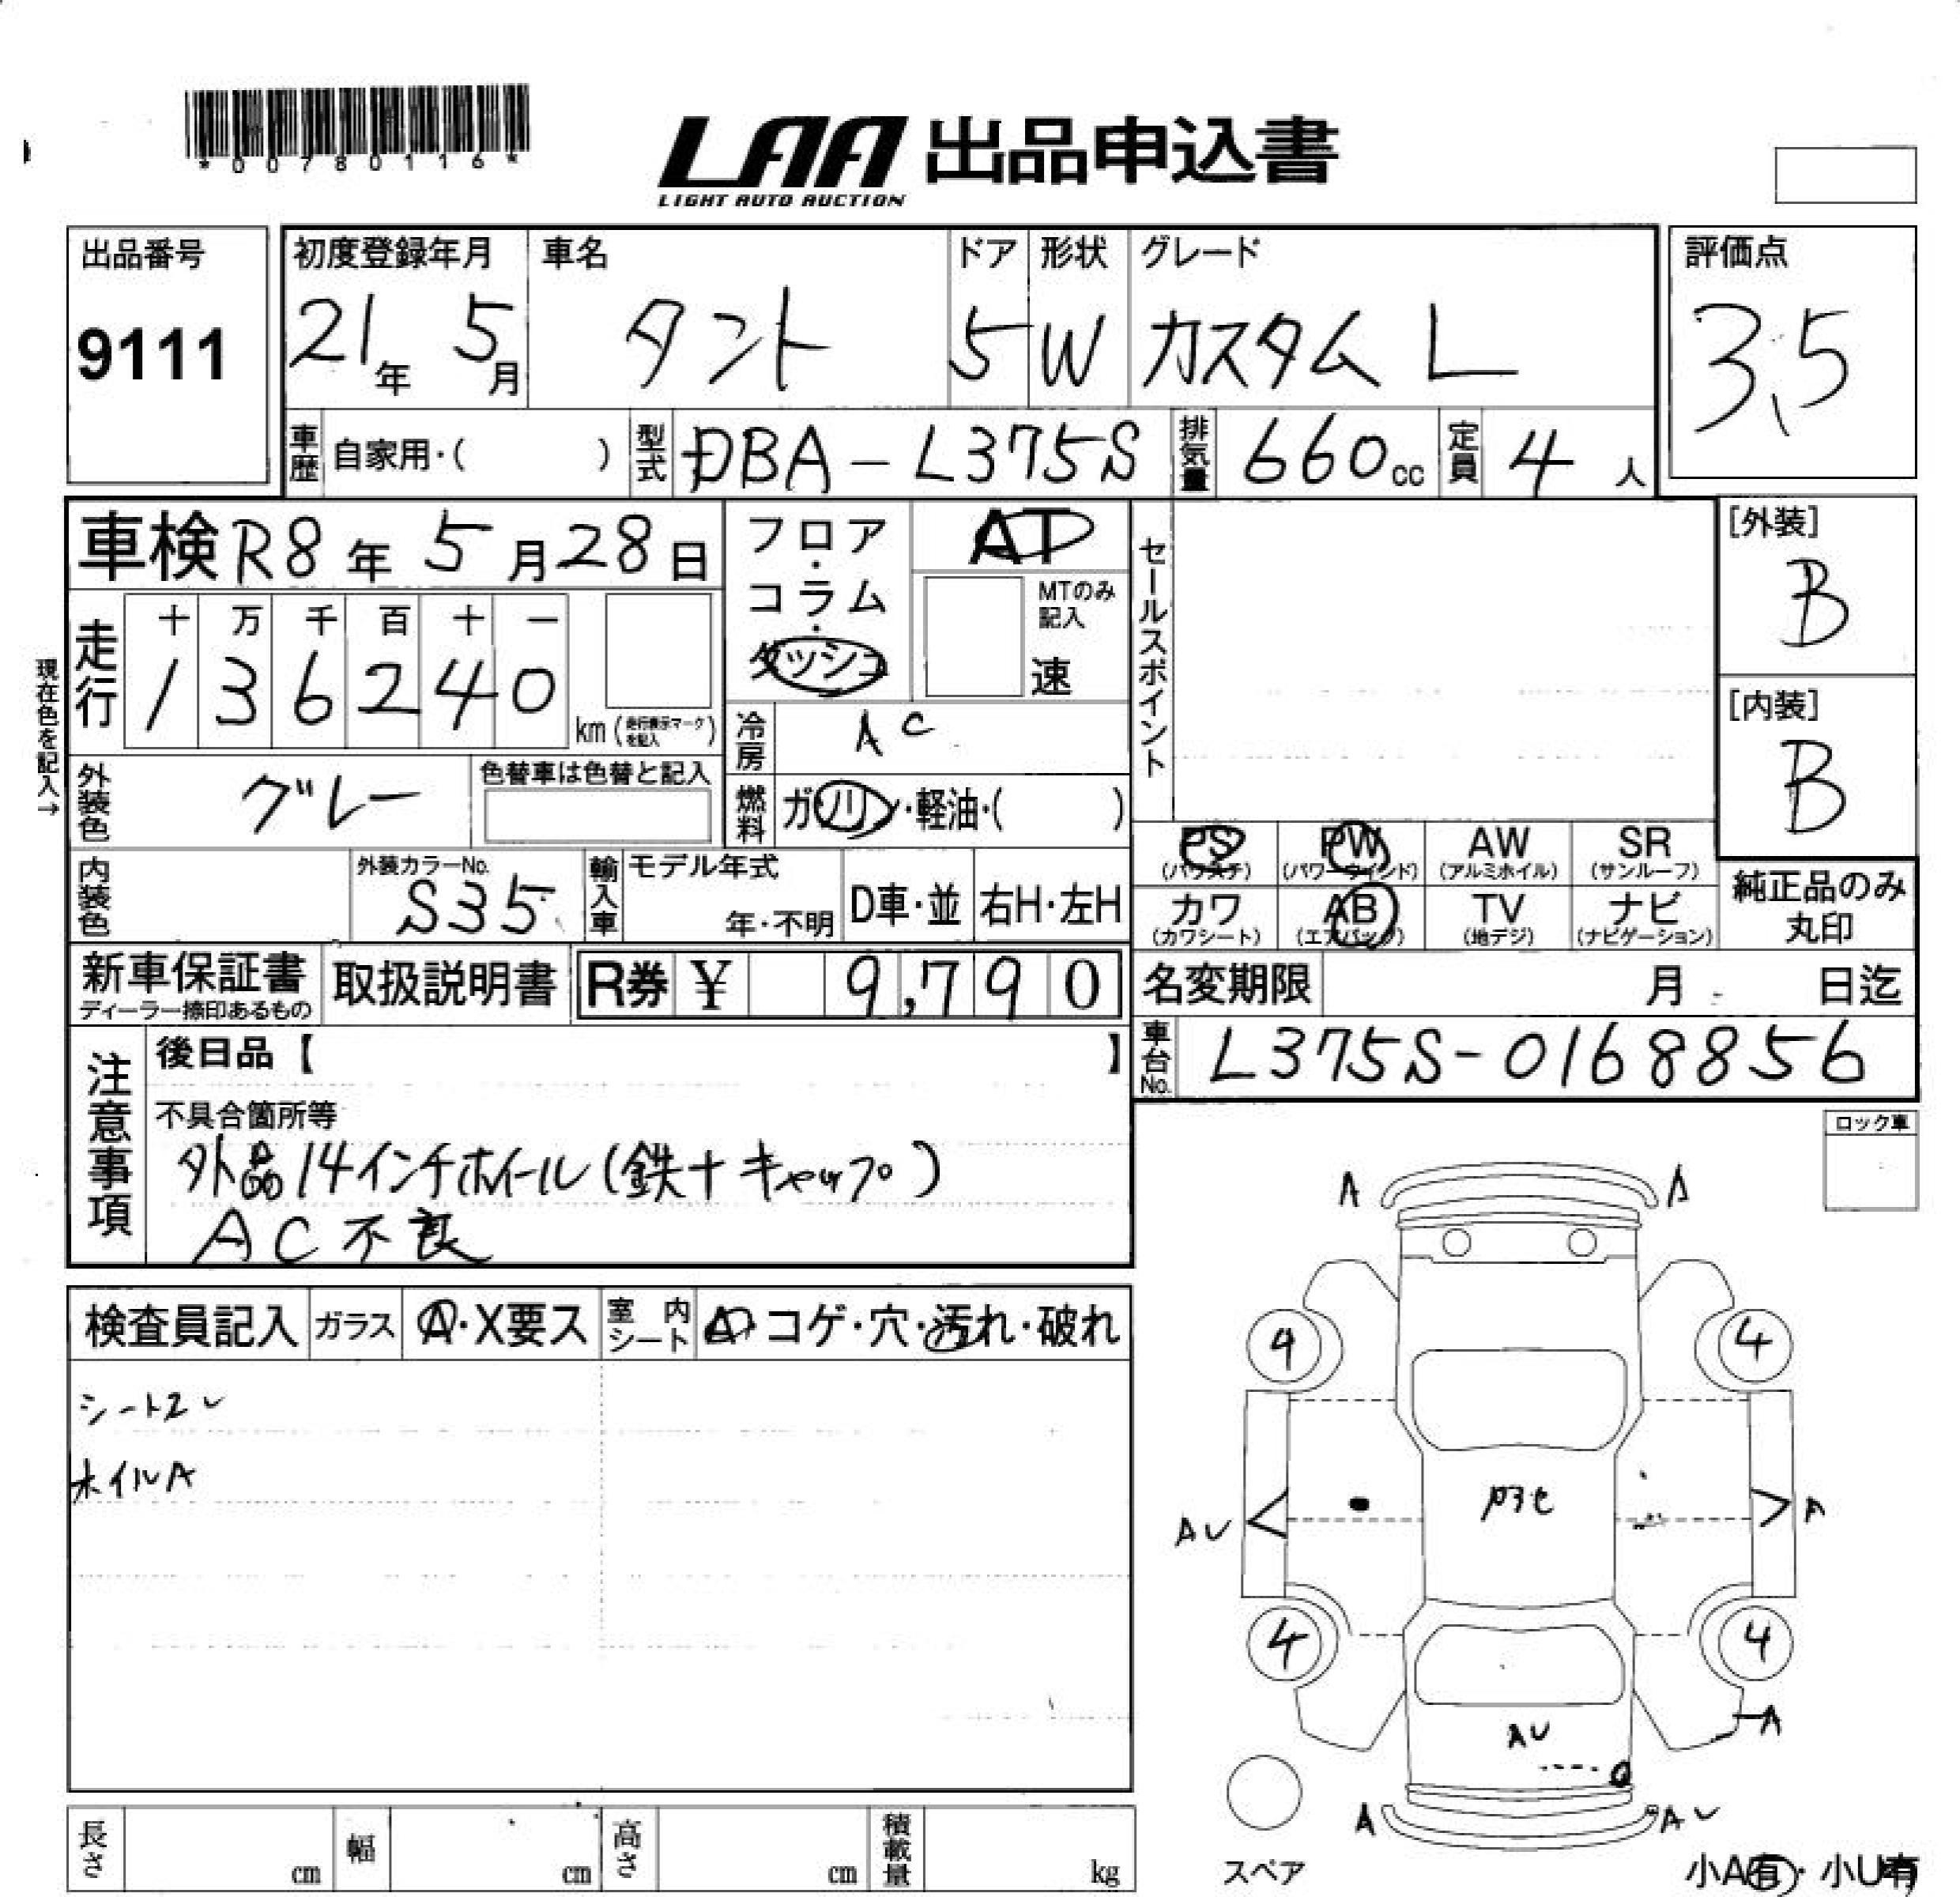 *00780116*
LAA 出品申込書
LIGHT AUTO AUCTION
出品番号 9111
初度登録年月 21年 5月
車名 タント
ドア 5
形状 W
グレード カスタム L
評価点 3.5
車歴 自家用・( )
型式 DBA-L375S
排気量 660cc
定員 4人
車検 R8年 5月28日
フロア・コラム・ダッシュ
AT
MTのみ記入
速
セールスポイント
[外装] B
現在色を記入→
走行 十 万 千 百 十 一
1 3 6 2 4 0 km (走行表示マークを記入)
冷房 AC
[内装] B
外装色 グレー
色替車は色替と記入
燃料 ガソリン・軽油・( )
PS (パワステ) PW (パワーウインド) AW (アルミホイル) SR (サンルーフ)
内装色
外装カラーNo. S35
輸入車 モデル年式 年・不明
D車・並 右H・左H
カワ (カワシート) AB (エアバッグ) TV (地デジ) ナビ (ナビゲーション)
純正品のみ丸印
新車保証書
ディーラー捺印あるもの
取扱説明書
R券 ¥ 9,790
名変期限 月 日迄
注意事項
後日品【 】
車台No. L375S-0168856
不具合箇所等
外品14インチホイール(鉄+キャップ)
AC不良
ロック車
検査員記入 ガラス A・X要ス 室内シート A・コゲ・穴・汚れ・破れ
ホイルA
A A
4 4
AU A
4 4
A
AU
A A
スペア
長さ cm 幅 cm 高さ cm 積載量 kg
小A有・小U有